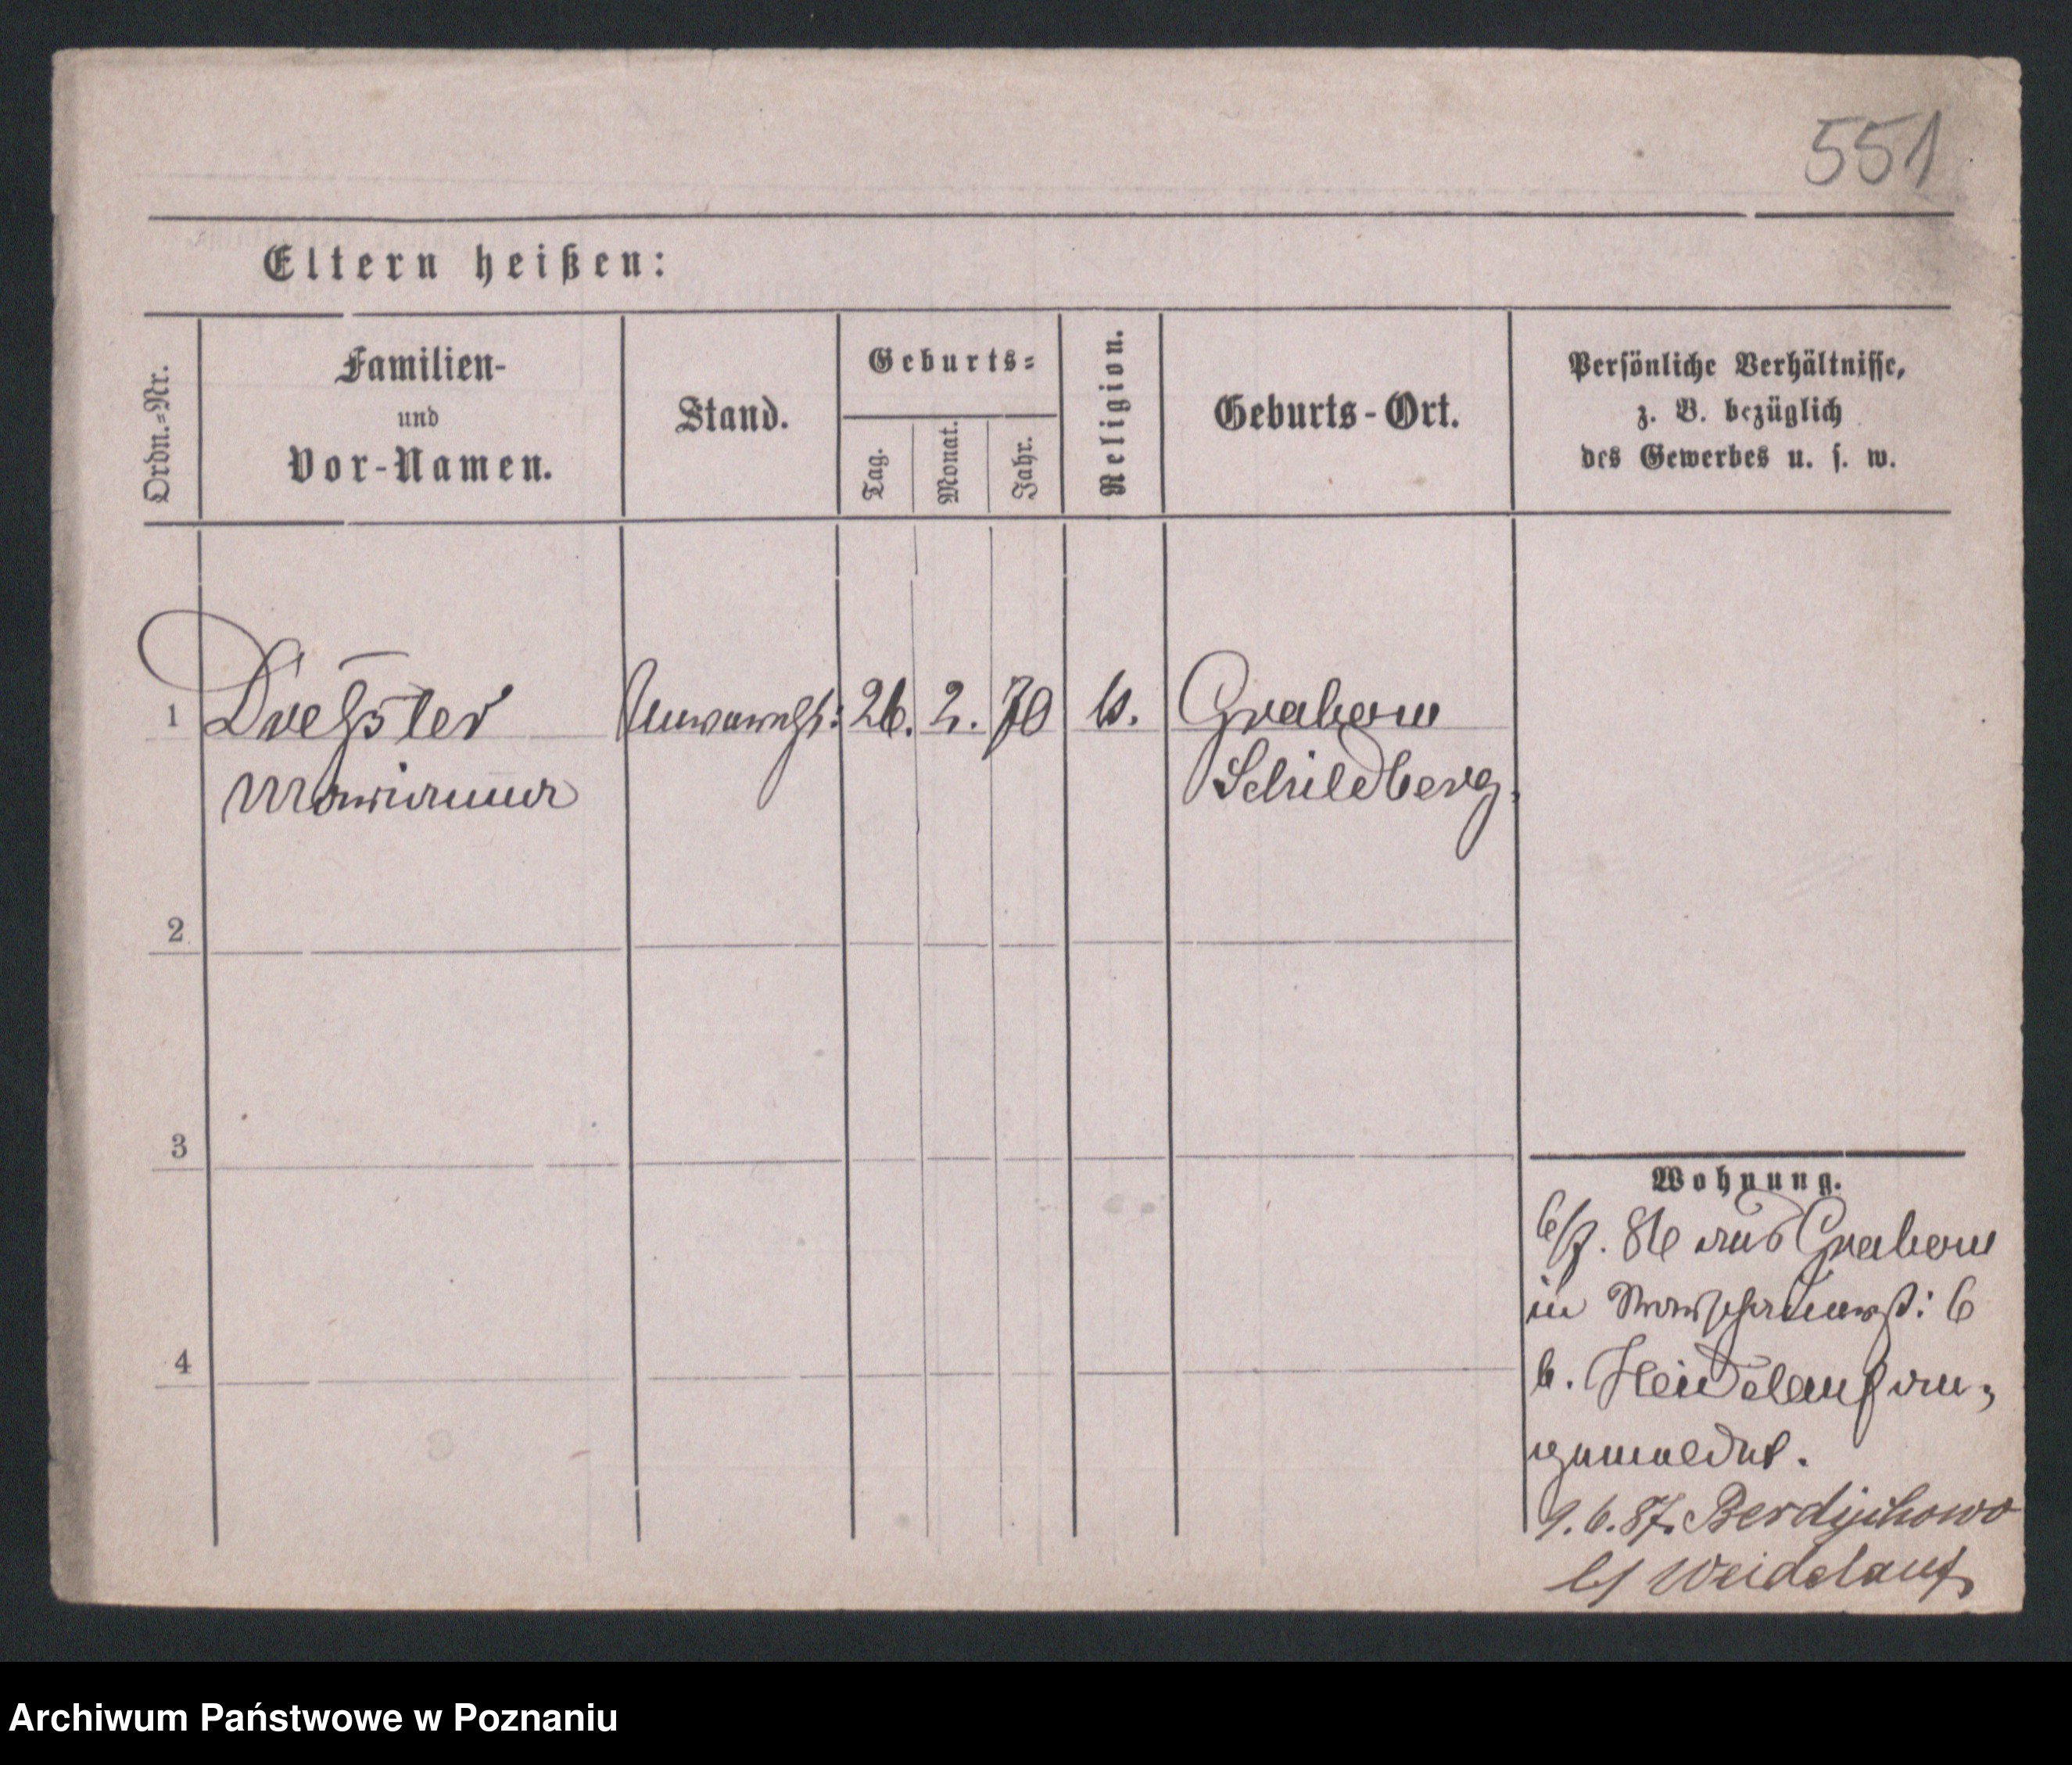 551
Eltern heißen:
Ordn.=Nr.
Familien-
und
Vor-Namen.
Stand.
Geburts=
Tag.
Monat.
Jahr.
Religion.
Geburts-Ort.
Persönliche Verhältnisse,
z. B. bezüglich
des Gewerbes u. s. w.
1
26. 2. 70
Grabow
Marianna
Schildberg.
2
3
4
Wohnung.
6/7. 86 aus Grabow
in 6
b. an=
gemeldet.
9.6.87. Berdychowo
b/ Weidelauf
Archiwum Państwowe w Poznaniu